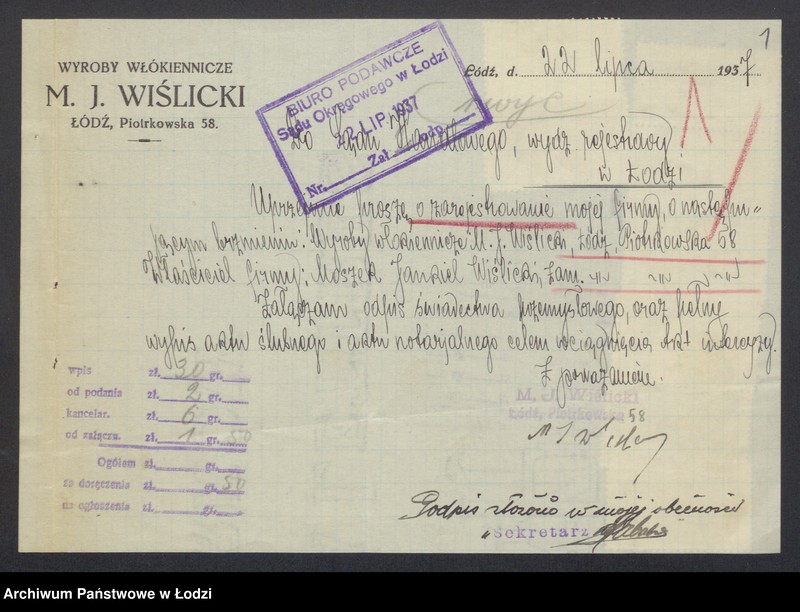 1
WYROBY WŁÓKIENNICZE
M. J. WIŚLICKI
ŁÓDŹ, Piotrkowska 58.
Łódź, d. 22 lipca 1937
BIURO PODAWCZE
Sądu Okręgowego w Łodzi
LIP. 1937
Nr. Zał. opł.
Do Sądu Handlowego, wydz. rejestrowy
w Łodzi
Uprzejmie proszę o zarejestrowanie mojej firmy, o następu-
jącym brzmieniu: Wyroby włókiennicze M. J. Wiślicki, Łódź, Piotrkowska 58
Właściciel firmy: Moszek Jankiel Wiślicki, zam.
Załączam odpis świadectwa przemysłowego, oraz
wypis aktu ślubnego i aktu notarjalnego celem wciągnięcia
Z poważaniem.
M. J. Wiślicki
Łódź, Piotrkowska 58
wpis zł. 30 gr.
od podania zł. 2 gr.
kancelar. zł. 6 gr.
od załączn. zł. 1 gr. 50
Ogółem zł. gr.
za doręczenia zł. gr. 50
na ogłoszenia zł. gr.
Podpis złożono w mojej obecności
Sekretarz
Archiwum Państwowe w Łodzi